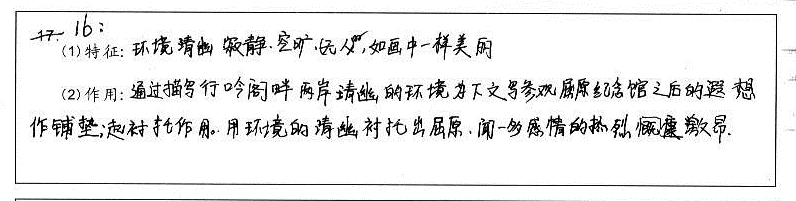 16:
(1)特征: 环境清幽 寂静.空旷.无人,如画中一样美丽
(2)作用: 通过描写行吟阁畔两岸清幽的环境为下文写参观屈原纪念馆之后的遐想
作铺垫;起衬托作用。用环境的清幽衬托出屈原.闻一多感情的热烈 慷慨激昂.